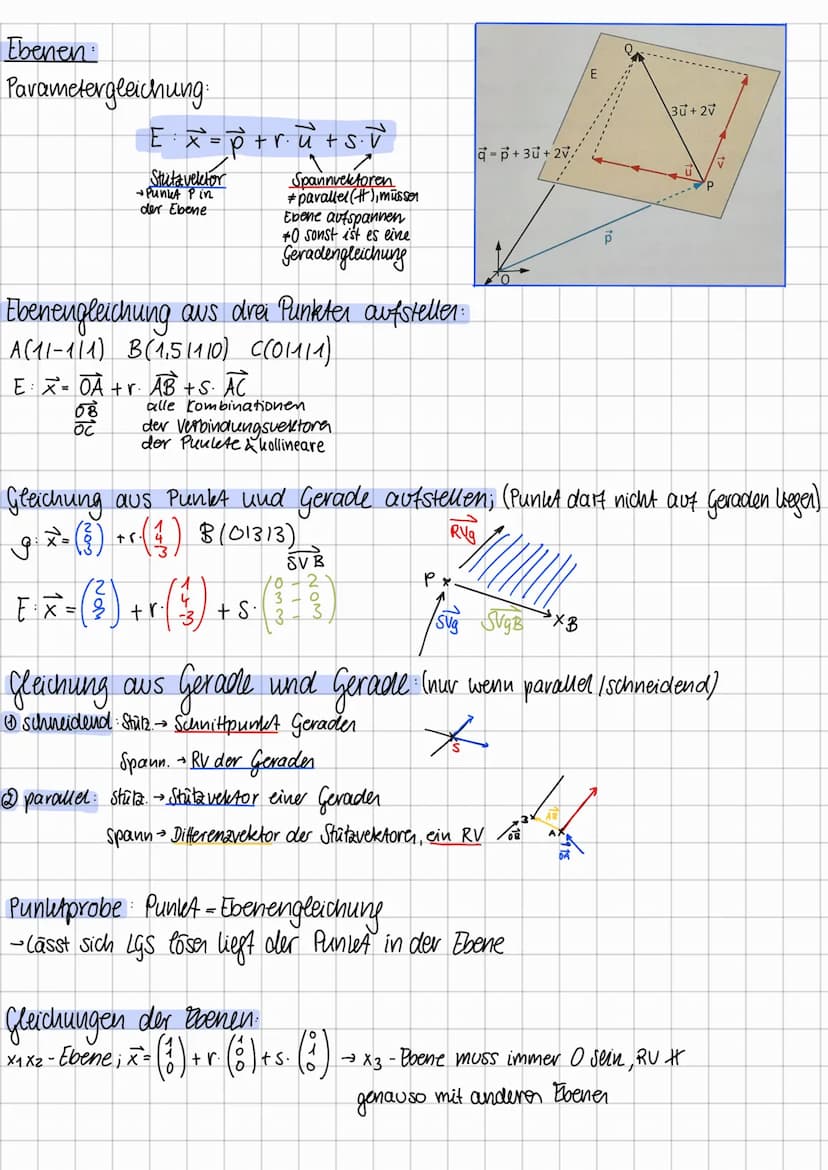 Ebenen:
Parametergleichung:
E: x⃗ = p⃗ + r · u⃗ + s · v⃗
Stützvektor
→ Punkt P in
der Ebene
Spannvektoren
≠ parallel (∦), müssen
Ebene aufspannen
≠0 sonst ist es eine
Geradengleichung
Q
E
3u⃗ + 2v⃗
q⃗ = p⃗ + 3u⃗ + 2v⃗
u⃗
v⃗
P
p⃗
O
Ebenengleichung aus drei Punkten aufstellen:
A(1|-1|1) B(1,5|1|0) C(0|1|1)
E: x⃗ = OA⃗ + r · AB⃗ + s · AC⃗
OB⃗
OC⃗
alle Kombinationen
der Verbindungsvektoren
der Punkte kollineare
Gleichung aus Punkt und Gerade aufstellen; (Punkt darf nicht auf Geraden liegen)
g: x⃗ = (2 0 3) + r · (1 4 3) B(0|3|3)
SVB⃗
E: x⃗ = (2 0 3) + r · (1 4 -3) + s · (0 - 2 3 - 0 3 - 3)
RVg⃗
P
SVg⃗
SVgB⃗
B
Gleichung aus Gerade und Gerade: (nur wenn parallel/schneidend)
① schneidend: Stütz. → Schnittpunkt Geraden
S
Spann. → RV der Geraden
② parallel: Stütz. → Stützvektor einer Geraden
Spann → Differenzvektor der Stützvektoren, ein RV
B
AB⃗
OB⃗
A
OA⃗
Punktprobe: Punkt = Ebenengleichung
→ Lässt sich LGS lösen liegt der Punkt in der Ebene
Gleichungen der Ebenen:
x1x2 - Ebene; x⃗ = (1 1 0) + r · (1 0 0) + s · (0 1 0) → x3 - Ebene muss immer 0 sein, RV ∦
genauso mit anderen Ebenen